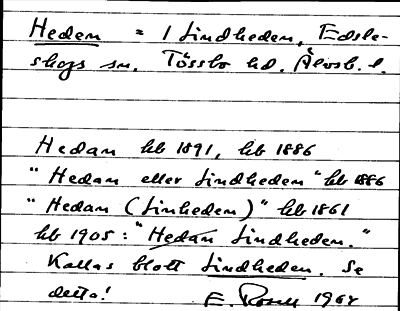 Hedem = 1 Lindheden, Edsle-
skogs sn. Tössbo hd. Älvsb. l.
Hedan hb 1891, hb 1886
"Hedan eller Lindheden" hb 1886
"Hedan (Linheden)" hb 1861
hb 1905: "Hedan Lindheden."
Kallas blott Lindheden. Se
detta! E. Rosell 1964